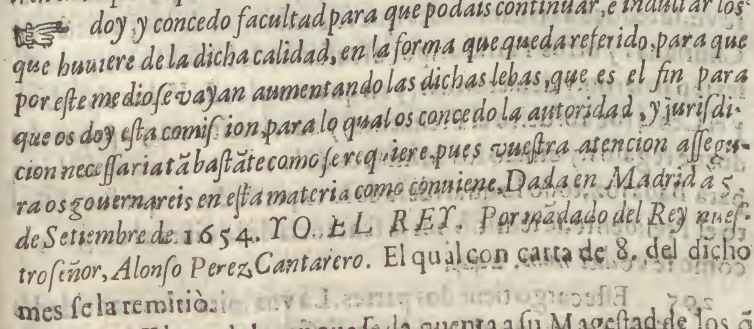 doy, y concedo facultad para que podais continuar, e indultar los
que huuiere de la dicha calidad, en la forma que queda referido, para que
por este medio se vayan aumentando las dichas lebas, que es el fin para
que os doy esta comission, para lo qual os concedo la autoridad, y jurisdi-
cion necessaria tã bastãte como se requiere, pues vuestra atencion assegu-
ra os gouernareis en esta materia como conuiene. Dada en Madrid à 5.
de Setiembre de 1654. YO EL REY. Por mãdado del Rey nues-
tro señor, Alonso Perez Cantarero. El qual con carta de 8. del dicho
mes se la remitiò.
se dà quenta a su Magestad de los q̃